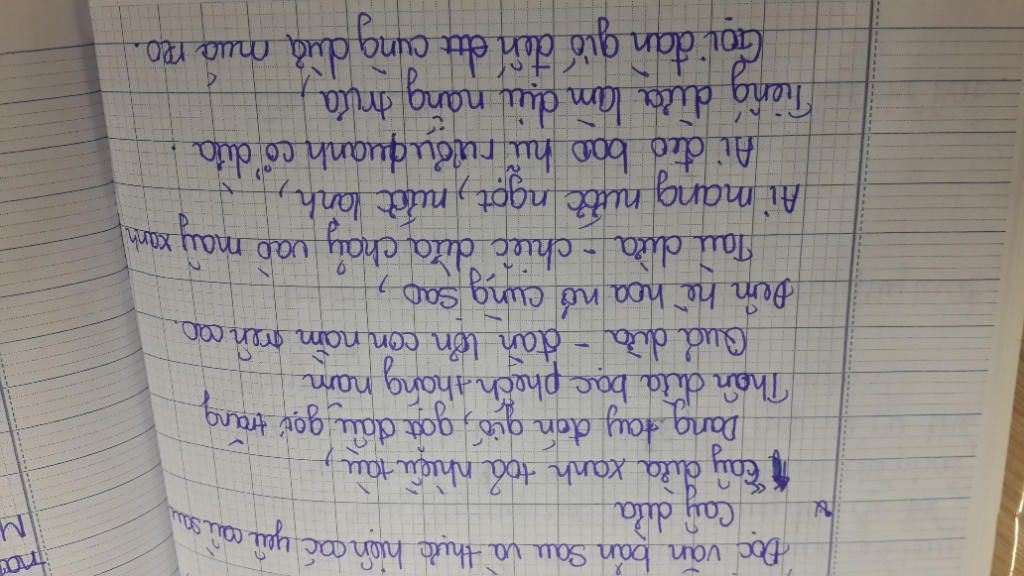 Đọc văn bản sau và thực hiện các yêu cầu sau
Cây dừa
Cây dừa xanh toả nhiều tàu,
Dang tay đón gió, gật đầu gọi trăng
Thân dừa bạc phếch tháng năm
Quả dừa - đàn lợn con nằm trên cao.
Đêm hè hoa nở cùng sao,
Tàu dừa - chiếc dừa chảy vào mây xanh
Ai mang nước ngọt, nước lành,
Ai đeo bao hũ rượu quanh cổ dừa.
Tiếng dừa làm dịu nắng trưa,
Gọi đàn gió đến cùng dừa múa reo.